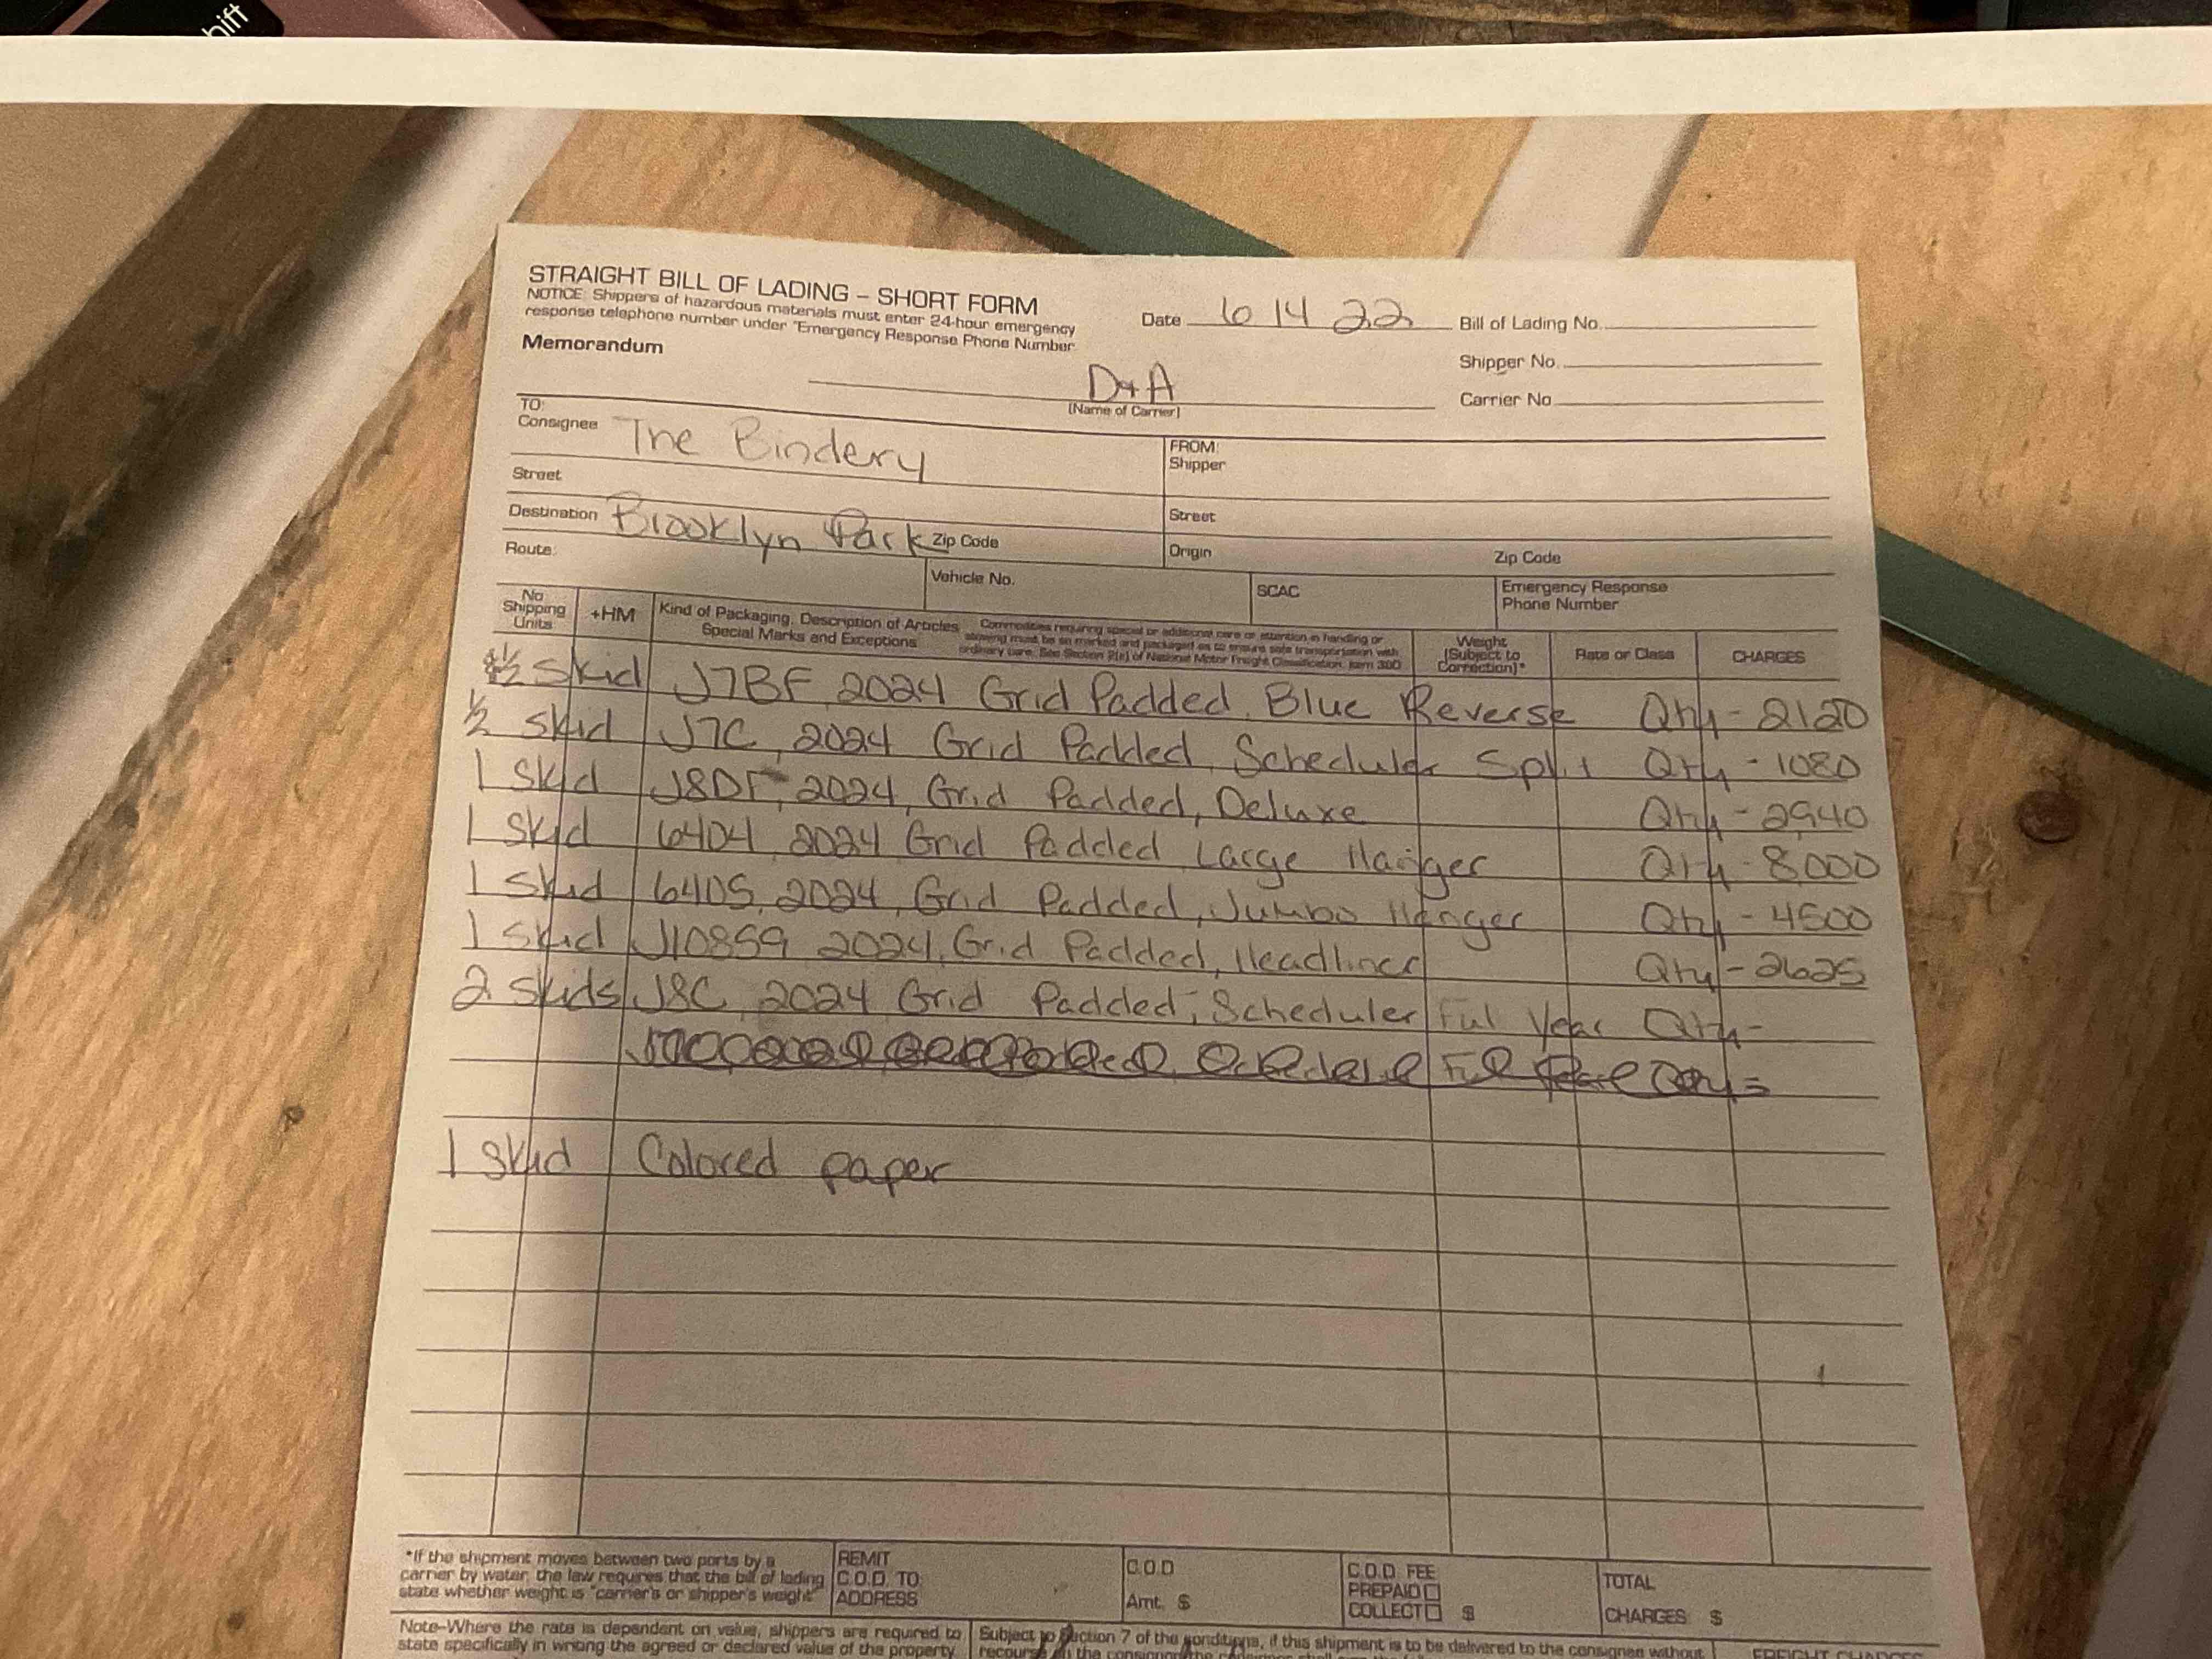 hift
STRAIGHT BILL OF LADING – SHORT FORM
NOTICE: Shippers of hazardous materials must enter 24-hour emergency
response telephone number under "Emergency Response Phone Number.
Memorandum
Date 6 14 22
Bill of Lading No.
Shipper No.
Carrier No.
D+A
(Name of Carrier)
TO:
Consignee The Bindery
Street
Destination Brooklyn Park Zip Code
Route:
FROM:
Shipper
Street
Origin Zip Code
Vehicle No.
SCAC
Emergency Response
Phone Number
No.
Shipping
Units
+HM
Kind of Packaging, Description of Articles
Special Marks and Exceptions
Commodities requiring special or additional care or attention in handling or
stowing must be so marked and packaged as to ensure safe transportation with
ordinary care. See Section 2(e) of National Motor Freight Classification, Item 360
Weight
(Subject to
Correction)*
Rate or Class
CHARGES
1/2 skid J7BF 2024 Grid Padded, Blue Reverse Qty - 2120
1/2 skid J7C, 2024 Grid Padded, Scheduler Split Qty - 1080
1 skid J8DF, 2024, Grid Padded, Deluxe Qty - 2940
1 skid 6404 2024 Grid Padded Large Hanger Qty - 8000
1 skid 6405, 2024, Grid Padded, Jumbo Hanger Qty - 4500
1 skid J10859 2024, Grid Padded, Headliner Qty - 2625
2 skids J8C, 2024 Grid Padded, Scheduler Ful Year Qty -
1 skid Colored paper
*If the shipment moves between two ports by a
carrier by water, the law requires that the bill of lading
state whether weight is "carrier's or shipper's weight"
REMIT
C.O.D. TO:
ADDRESS
C.O.D
Amt. $
C.O.D. FEE
PREPAID
COLLECT $
TOTAL
CHARGES $
Note–Where the rate is dependent on value, shippers are required to
state specifically in writing the agreed or declared value of the property
Subject to Section 7 of the conditions, if this shipment is to be delivered to the consignee without
FREIGHT CHARGES